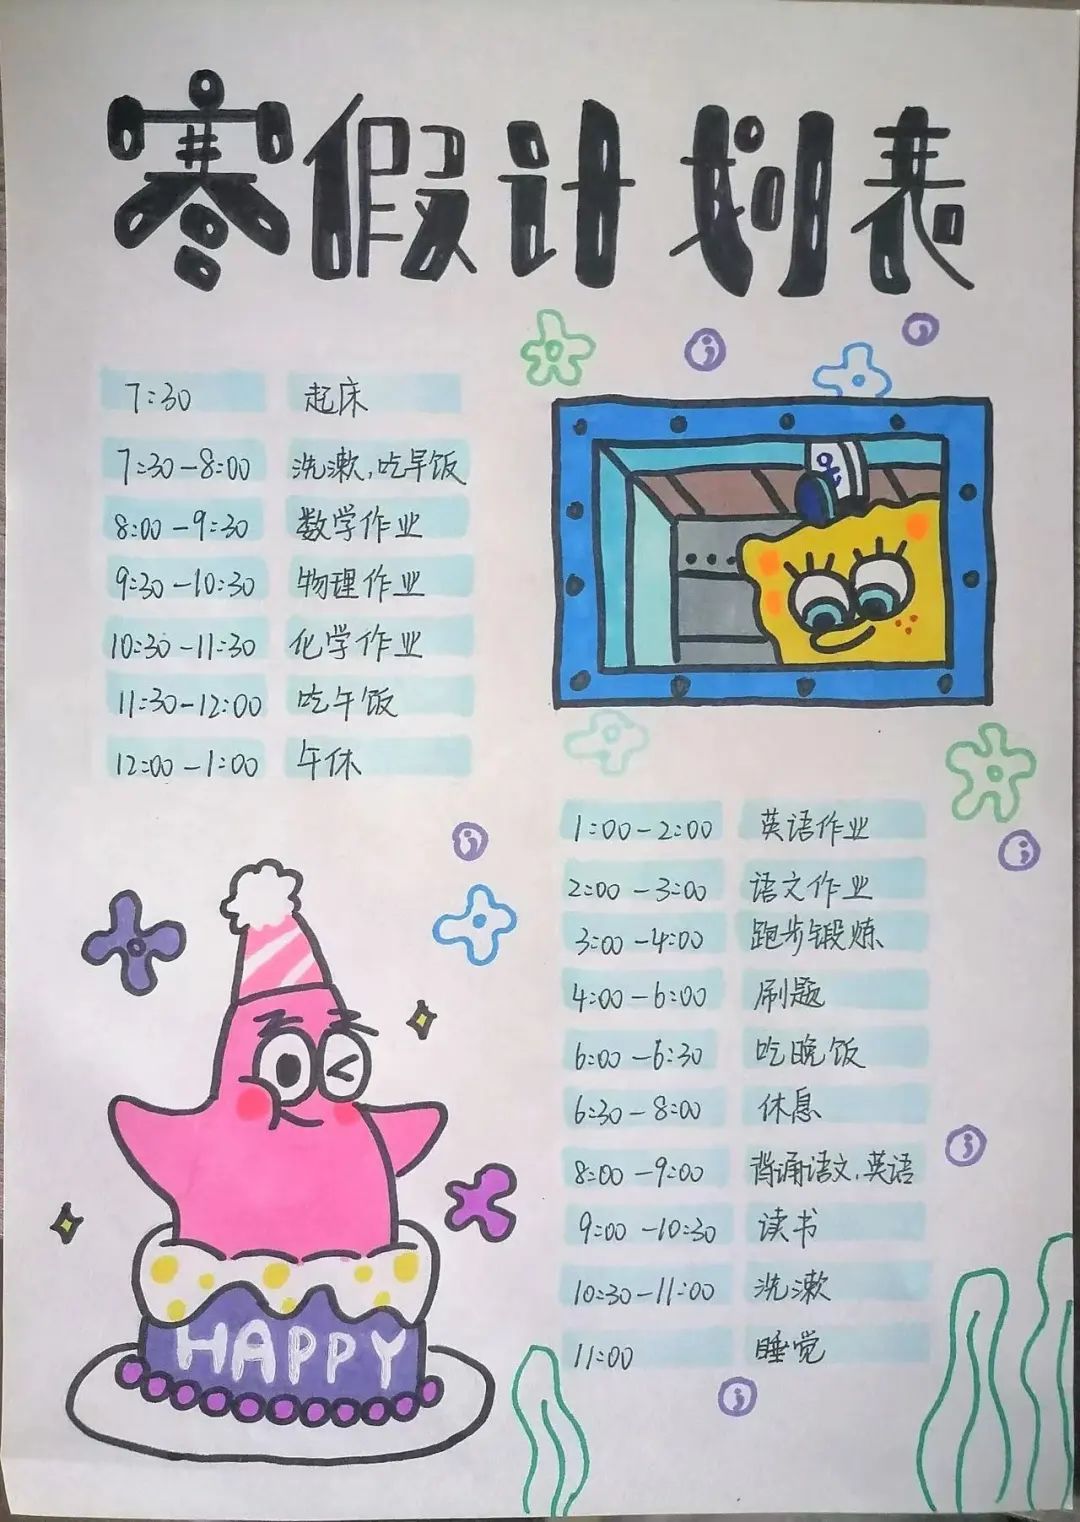 寒假计划表
7:30 起床
7:30-8:00 洗漱,吃早饭
8:00-9:30 数学作业
9:30-10:30 物理作业
10:30-11:30 化学作业
11:30-12:00 吃午饭
12:00-1:00 午休
1:00-2:00 英语作业
2:00-3:00 语文作业
3:00-4:00 跑步锻炼
4:00-6:00 刷题
6:00-6:30 吃晚饭
6:30-8:00 休息
8:00-9:00 背诵语文,英语
9:00-10:30 读书
10:30-11:00 洗漱
11:00 睡觉
HAPPY